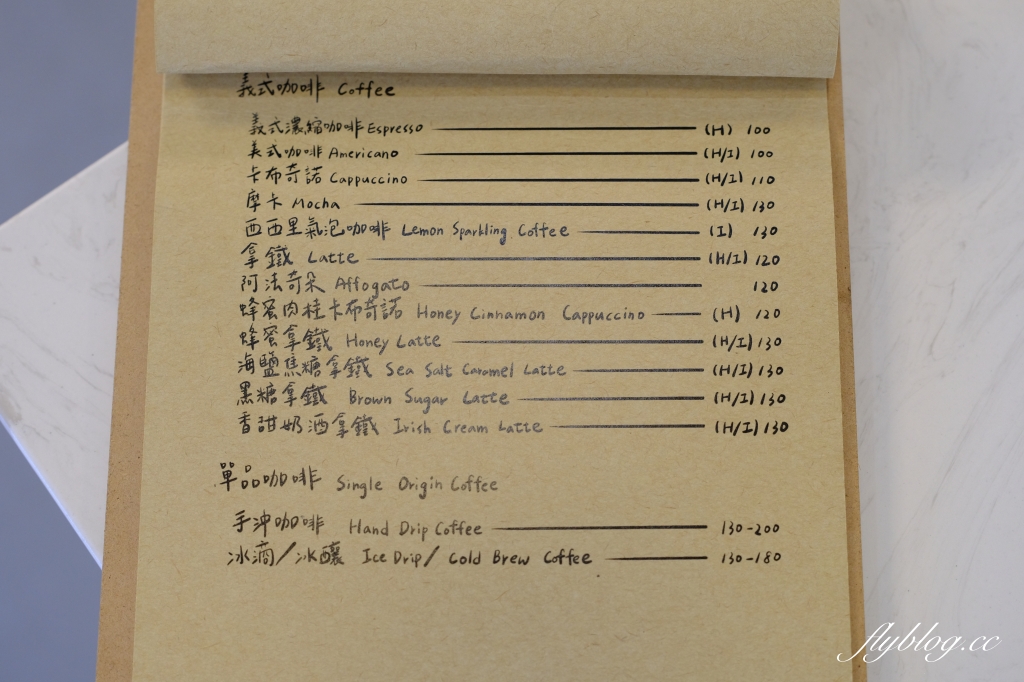 義式咖啡 Coffee
義式濃縮咖啡 Espresso (H) 100
美式咖啡 Americano (H/I) 100
卡布奇諾 Cappuccino (H/I) 110
摩卡 Mocha (H/I) 130
西西里氣泡咖啡 Lemon Sparkling Coffee (I) 130
拿鐵 Latte (H/I) 120
阿法奇朵 Affogato 120
蜂蜜肉桂卡布奇諾 Honey Cinnamon Cappuccino (H) 120
蜂蜜拿鐵 Honey Latte (H/I) 130
海鹽焦糖拿鐵 Sea Salt Caramel Latte (H/I) 130
黑糖拿鐵 Brown Sugar Latte (H/I) 130
香甜奶酒拿鐵 Irish Cream Latte (H/I) 130
單品咖啡 Single Origin Coffee
手沖咖啡 Hand Drip Coffee 130-200
冰滴/冰釀 Ice Drip/ Cold Brew Coffee 130-180
flyblog.cc